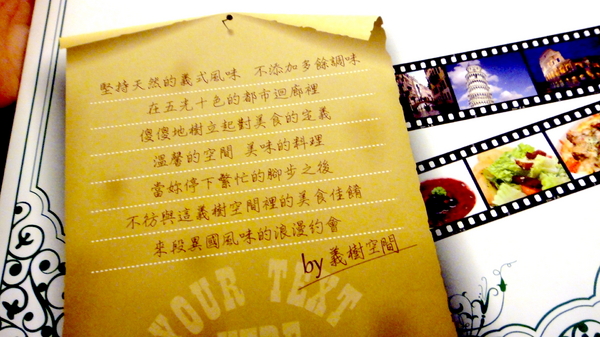 堅持天然的義式風味 不添加多餘調味
在五光十色的都市迴廊裡
傻傻地樹立起對美食的定義
溫馨的空間 美味的料理
當妳停下繁忙的腳步之後
不彷與這義樹空間裡的美食佳餚
來段異國風味的浪漫約會
by 義樹空間
YOUR TEXT
HERE